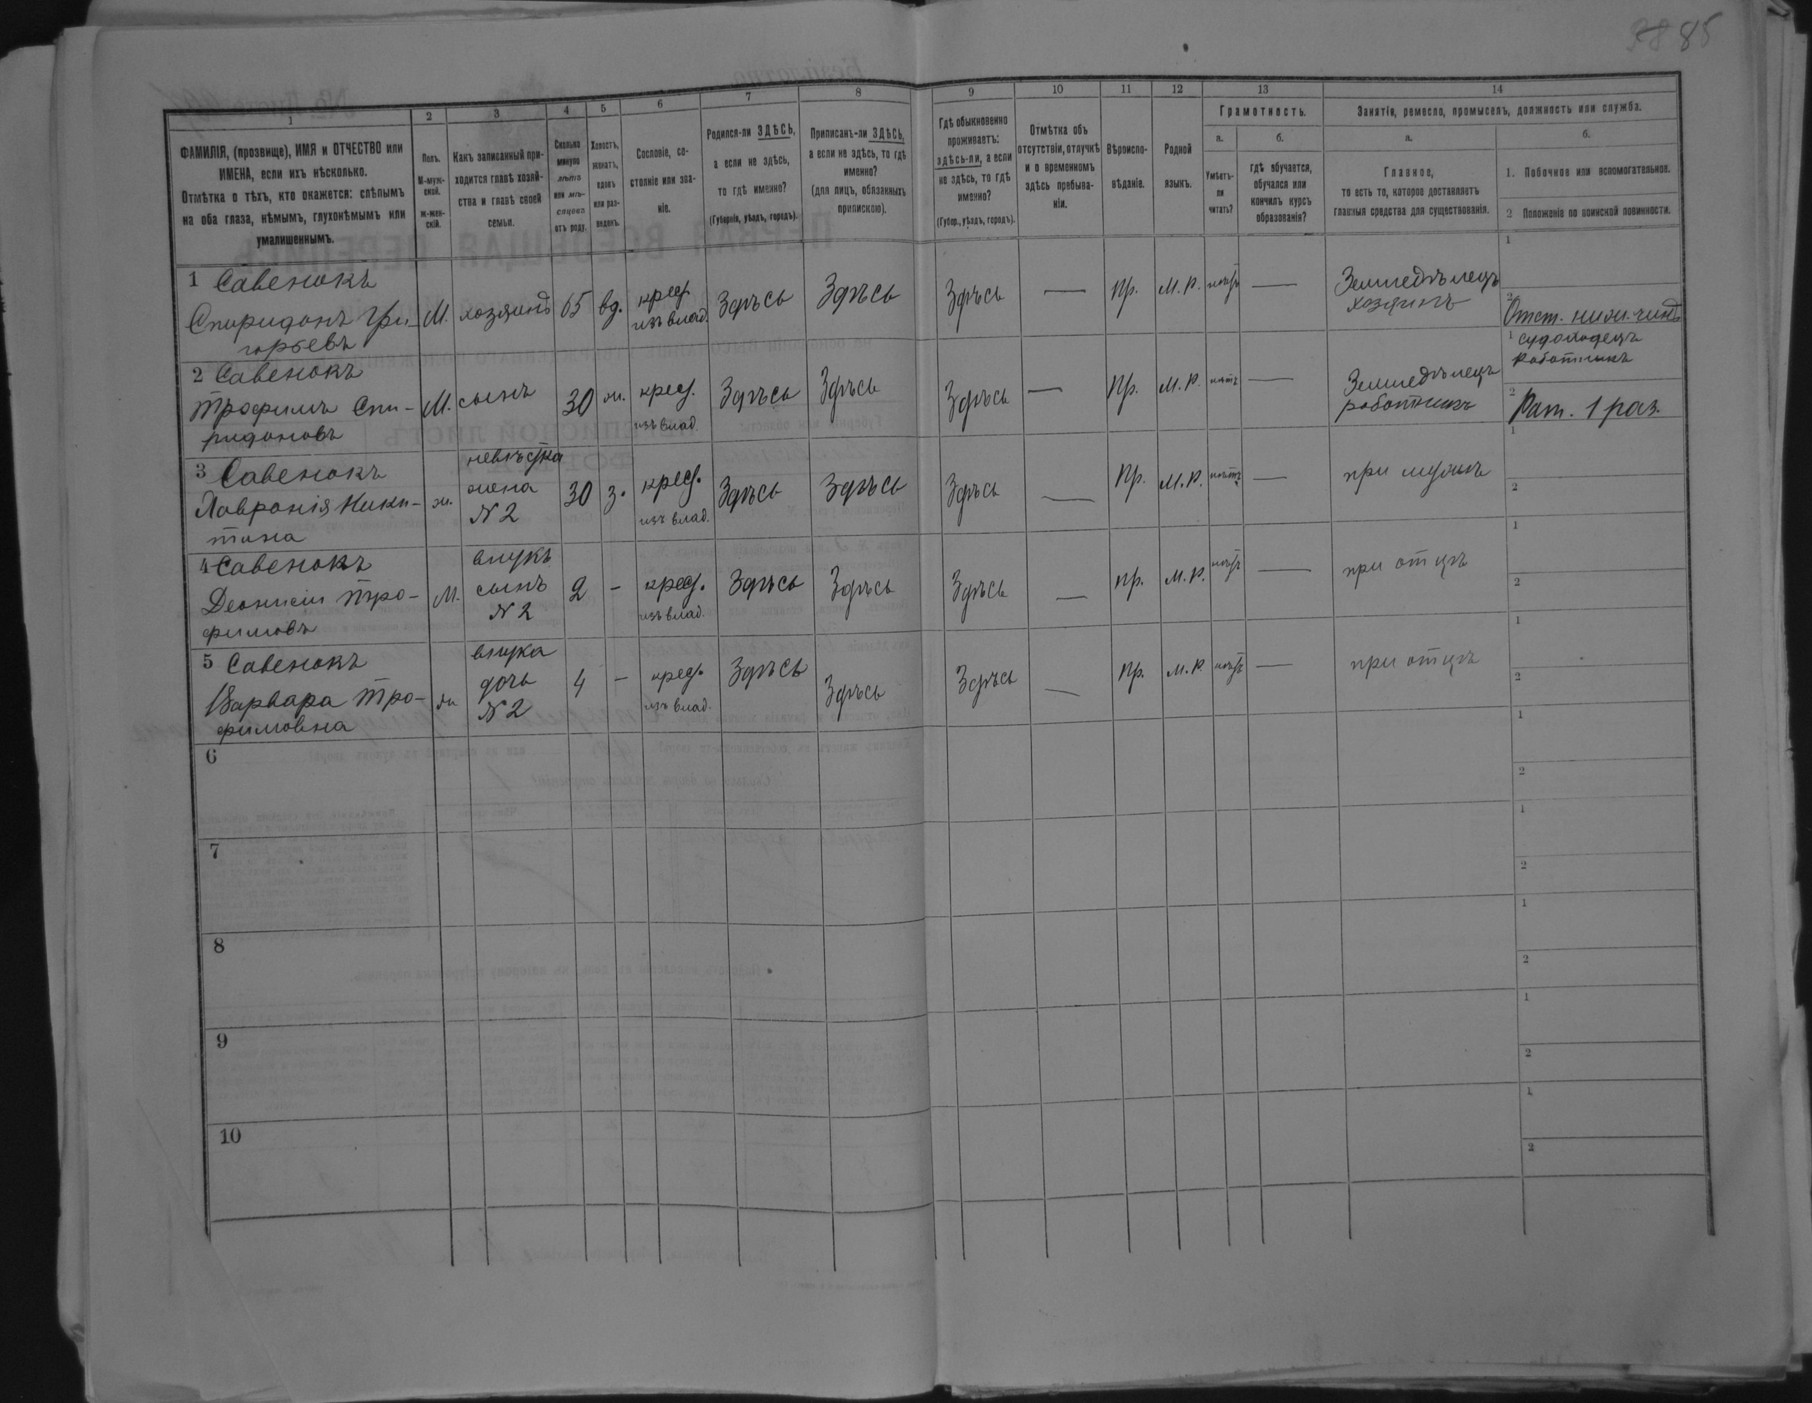 85
1 2 3 4 5 6 7 8 9 10 11 12 13 14
ФАМИЛІЯ, (прозвище), ИМЯ и ОТЧЕСТВО или
ИМЕНА, если ихъ нѣсколько.
Отмѣтка о тѣхъ, кто окажется: слѣпымъ
на оба глаза, нѣмымъ, глухонѣмымъ или
умалишеннымъ.
Полъ.
М-муж-
ской.
ж-жен-
скій.
Какъ записанный при-
ходится главѣ хозяй-
ства и главѣ своей
семьи.
Сколько
минуло
лѣтъ
или мѣ-
сяцевъ
отъ роду.
Холостъ,
женатъ,
вдовъ
или раз-
веденъ.
Сословіе, со-
стояніе или зва-
ніе.
Родился-ли ЗДѢСЬ,
а если не здѣсь,
то гдѣ именно?
(Губернія, уѣздъ, городъ).
Приписанъ-ли ЗДѢСЬ,
а если не здѣсь, то гдѣ
именно?
(для лицъ, обязанныхъ
припискою).
Гдѣ обыкновенно
проживаетъ:
здѣсь-ли, а если
не здѣсь, то гдѣ
именно?
(Губер., уѣздъ, городъ).
Отмѣтка объ
отсутствіи, отлучкѣ
и о временномъ
здѣсь пребыва-
ніи.
Вѣроиспо-
вѣданіе.
Родной
языкъ.
Грамотность.
а.
Умѣетъ-
ли
читать?
б.
гдѣ обучается,
обучался или
кончилъ курсъ
образованія?
Занятія, ремесло, промыселъ, должность или служба.
а.
Главное,
то есть то, которое доставляетъ
главныя средства для существованія.
б.
1. Побочное или вспомогательное.
2 Положеніе по воинской повинности.
1 Савенокъ
Спиридонъ Гри-
горьевъ
М. хозяинъ 65 вд. крес. изъ влад. Здѣсь Здѣсь Здѣсь — Пр. М.Р. нѣтъ —
Земледѣлецъ
хозяинъ
1
2
Отст. нижн. чинъ
2 Савенокъ
Трофимъ Спи-
ридоновъ
М. сынъ 30 ж. крес. изъ влад. Здѣсь Здѣсь Здѣсь — Пр. М.Р. нѣтъ —
Земледѣлецъ
работникъ
1
работникъ
2 Рат. 1 раз.
3 Савенокъ
Ники-
тина
ж.
невѣстка
жена
N 2
30 з. крес. изъ влад. Здѣсь Здѣсь Здѣсь — Пр. М.Р. нѣтъ — при мужѣ
1
2
4 Савенокъ
Деонисій Тро-
фимовъ
М.
внукъ
сынъ
N 2
2 — крес. изъ влад. Здѣсь Здѣсь Здѣсь — Пр. М.Р. нѣтъ — при отцѣ
1
2
5 Савенокъ
Варвара Тро-
фимовна
ж.
внука
дочь
N 2
4 — крес. изъ влад. Здѣсь Здѣсь Здѣсь — Пр. М.Р нѣтъ — при отцѣ
1
2
6
1
2
7
1
2
8
1
2
9
1
2
10
1
2